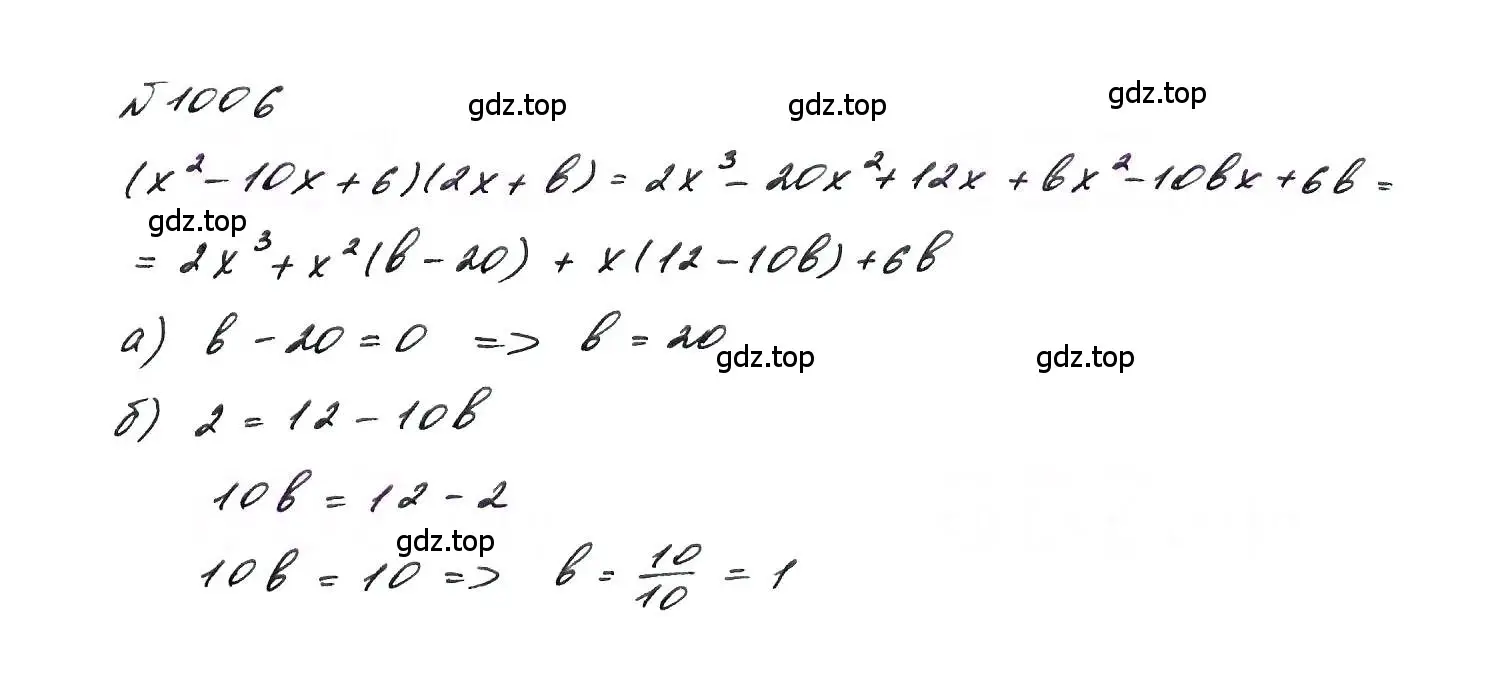 № 1006
gdz.top gdz.top gdz.top
(x² - 10x + 6)(2x + b) = 2x³ - 20x² + 12x + bx² - 10bx + 6b =
gdz.top
= 2x³ + x²(b - 20) + x(12 - 10b) + 6b
а) b - 20 = 0 => b = 20
gdz.top gdz.top
б) 2 = 12 - 10b
10b = 12 - 2
gdz.top
10b = 10 => b = 10/10 = 1